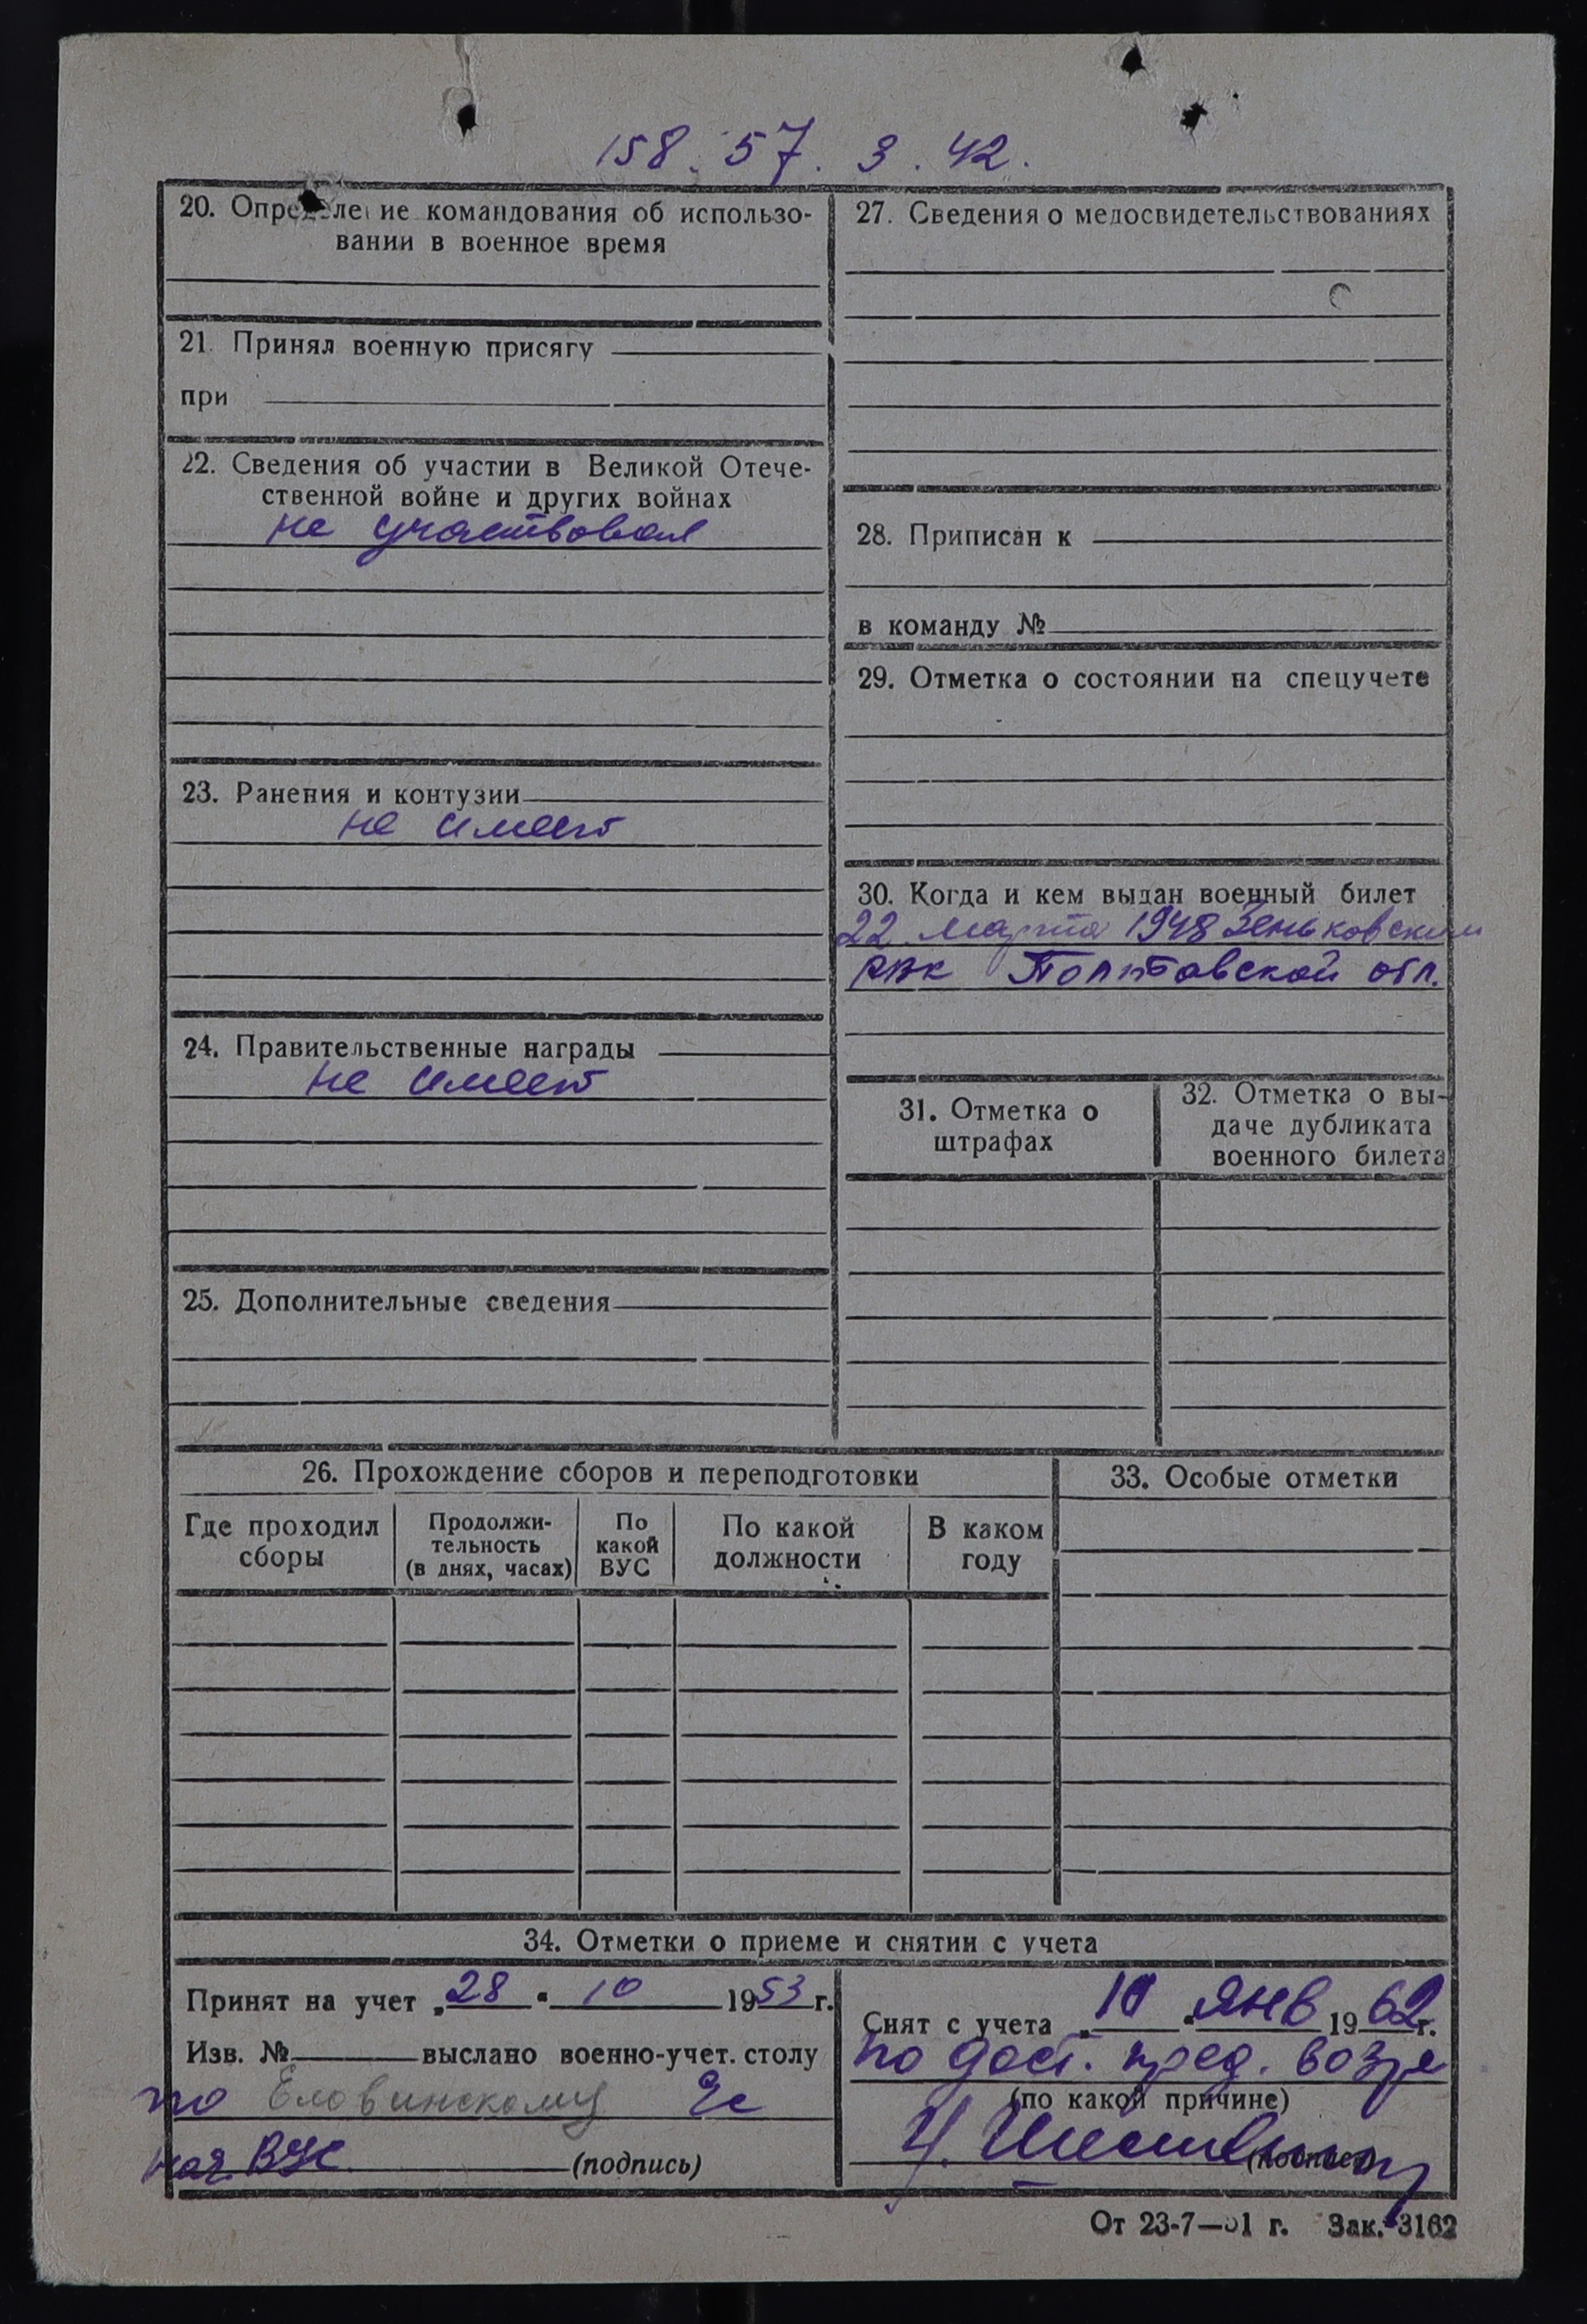 158. 57. 3. 42.
20. Определение командования об использо-
вании в военное время
21. Принял военную присягу
при
22. Сведения об участии в Великой Отече-
ственной войне и других войнах
не участвовал
23. Ранения и контузии
не имеет
24. Правительственные награды
не имеет
25. Дополнительные сведения
27. Сведения о медосвидетельствованиях
28. Приписан к
в команду №
29. Отметка о состоянии на спецучете
30. Когда и кем выдан военный билет
22 марта 1948 Зеньковским
РВК Полтавской обл.
31. Отметка о
штрафах
32. Отметка о вы-
даче дубликата
военного билета
26. Прохождение сборов и переподготовки
Где проходил
сборы
Продолжи-
тельность
(в днях, часах)
По
какой
ВУС
По какой
должности
В каком
году
33. Особые отметки
34. Отметки о приеме и снятии с учета
Принят на учет „28" 10 1953 г.
Изв. № выслано военно-учет. столу
по Еловинскому
нач. ВУС (подпись)
Снят с учета „10" янв 1962 г.
по дост. пред. возр
(по какой причине)
(подпись)
От 23-7—51 г. Зак. 3162